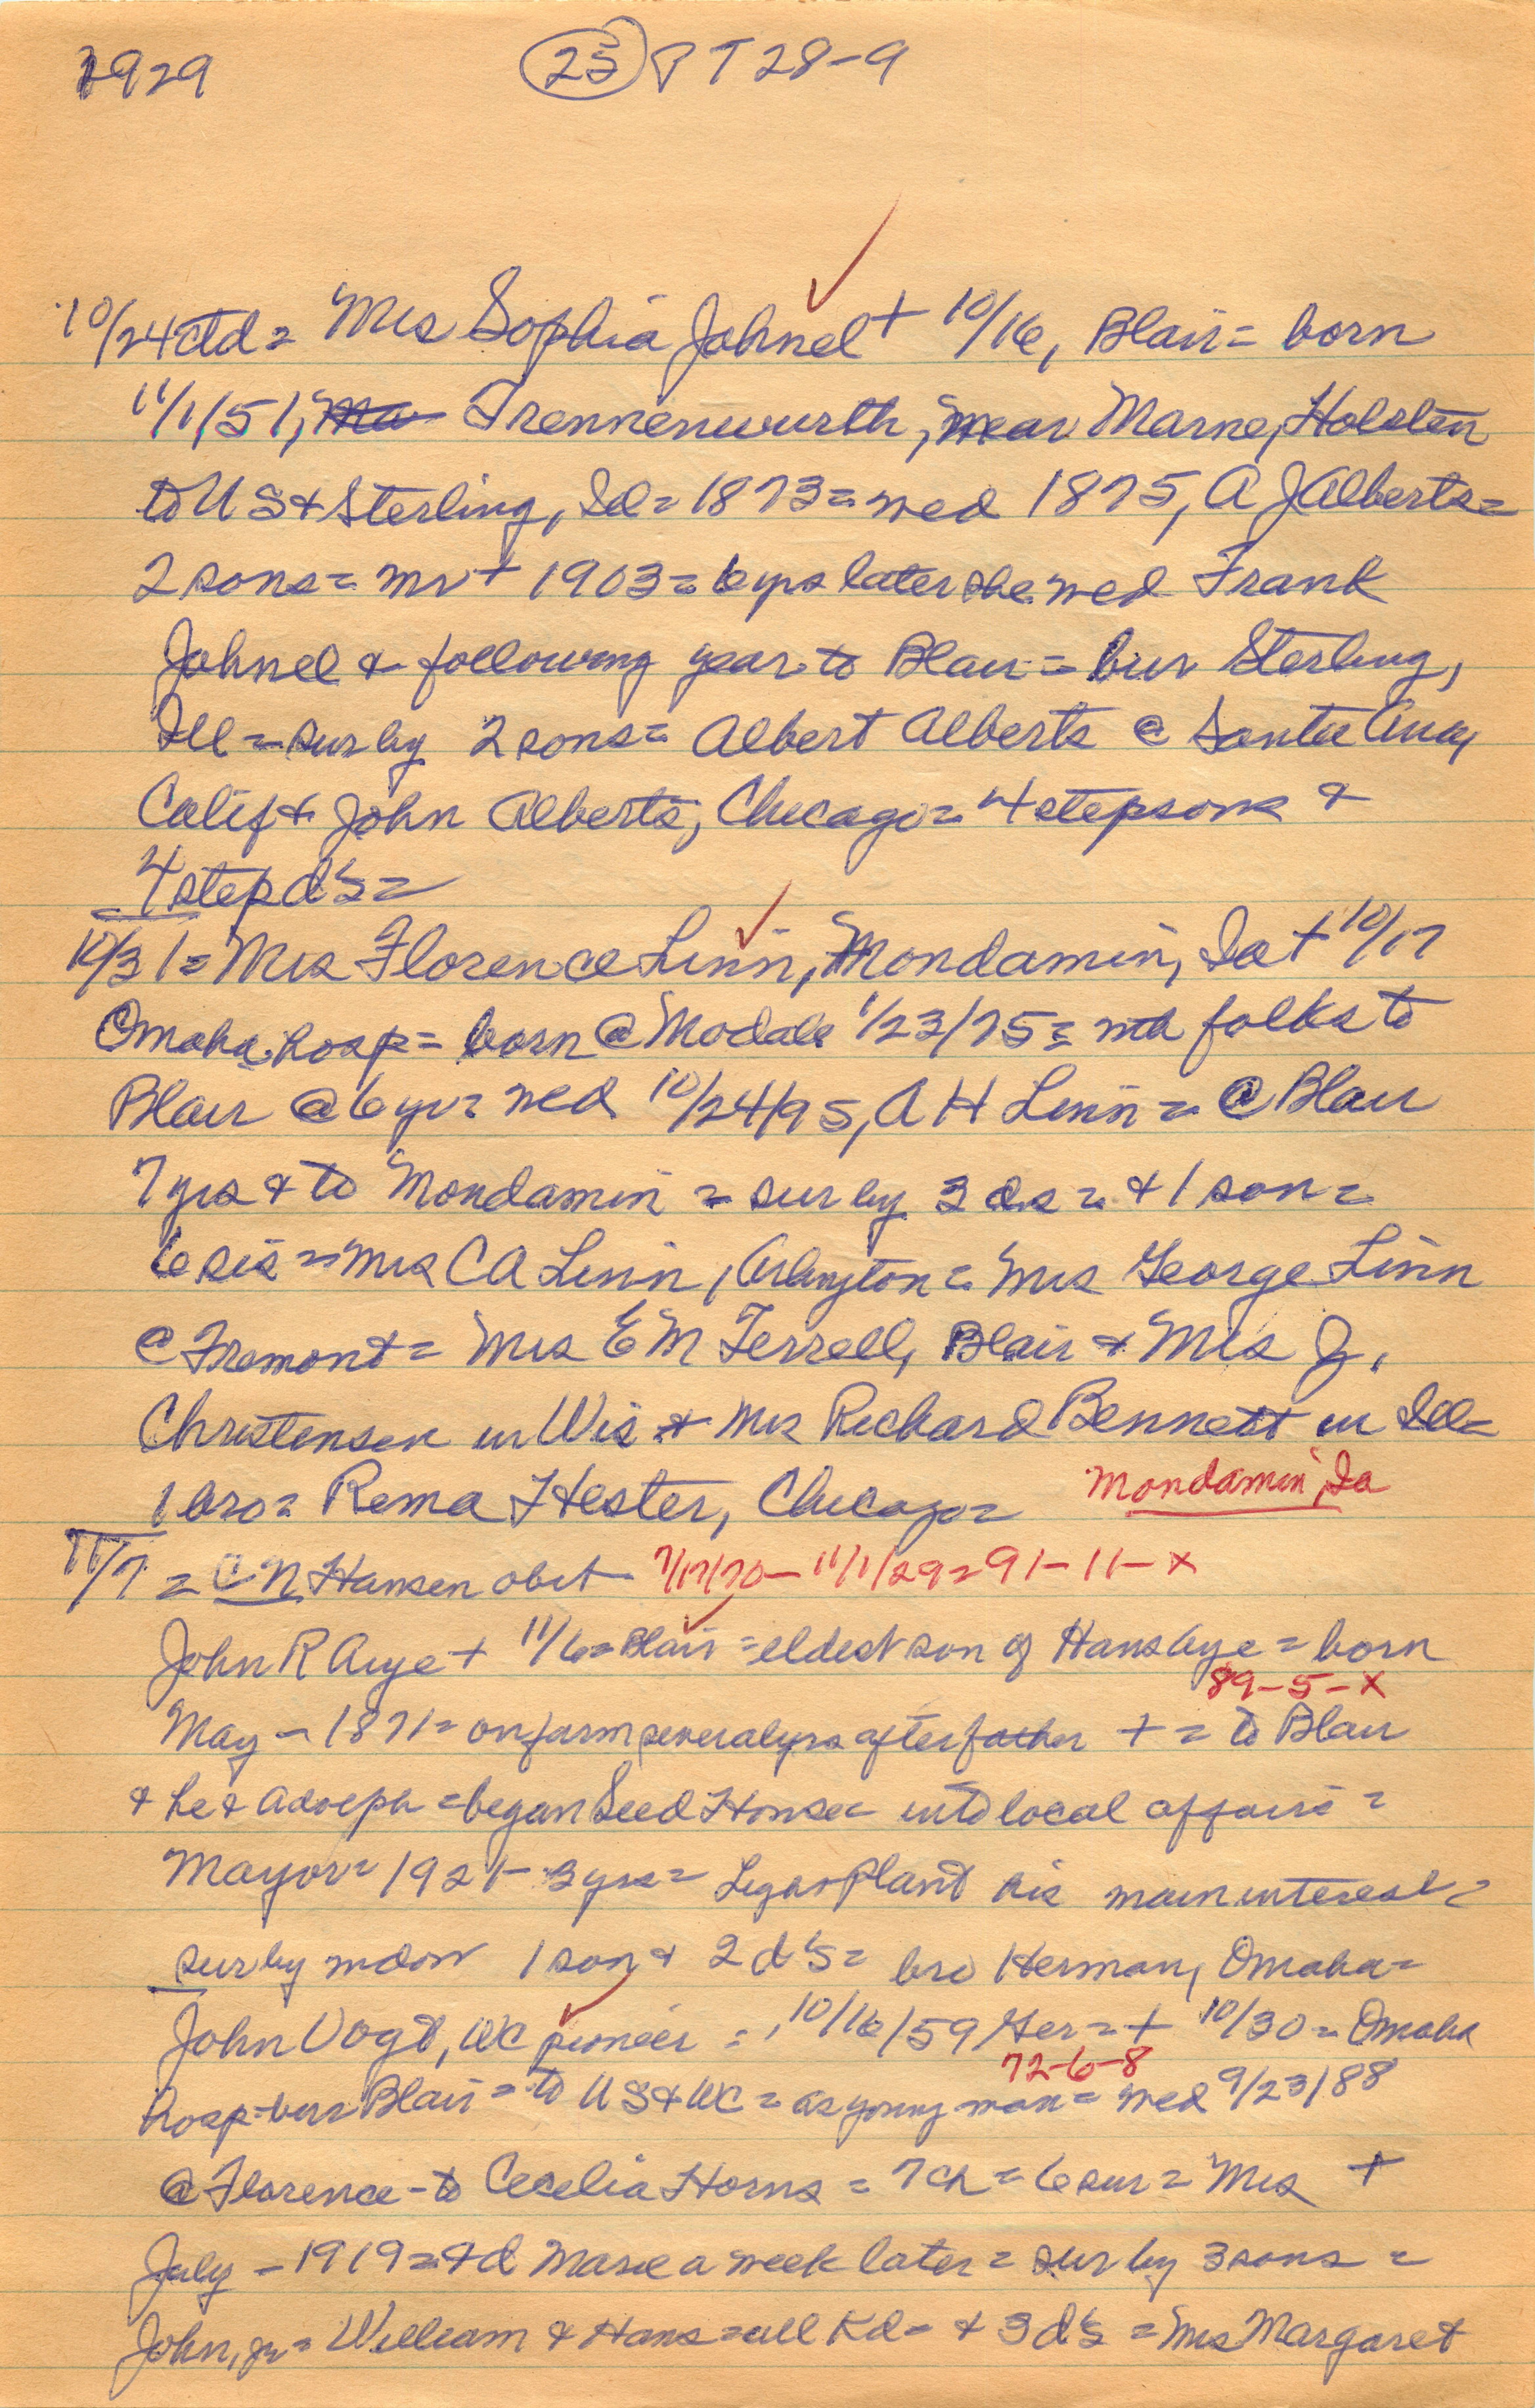 1929 (25) PT 28-9
10/24 ctd = Mrs Sophia Johnel + 10/16, Blair = born
11/1/51, Ma Trennenwurth, near Marne, Holsten
to US & Sterling, Ill = 1873 = wed 1875, A J Alberts =
2 sons = mr + 1903 = 6 yrs later she wed Frank
Johnel & following year to Blair = bur Sterling,
Ill = sur by 2 sons = Albert Alberts @ Santa Ana,
Calif & John Alberts, Chicago = 4 stepsons &
4 step d's =
10/31 = Mrs Florence Linn, Mondamin, Ia + 10/17
Omaha hosp = born @ Modale 1/23/75 = wth folks to
Blair @ 6 yr = wed 10/24/95, A H Linn = @ Blair
7 yrs & to Mondamin = sur by 3 ds = & 1 son =
6 sis = Mrs C A Linn, Arlington = Mrs George Linn
@ Fremont = Mrs E M Terrell, Blair & Mrs J.
Christensen in Wis & Mrs Richard Bennett in Ill =
1 bro = Rema Hester, Chicago = Mondamin, Ia
11/7 = C N Hansen obit 7/17/70 - 11/1/29 = 91-11-x
John R Aye + 11/6 = Blair = eldest son of Hans Aye = born
89-5-x
May - 1871 = on farm several yrs after father + = to Blair
& he & Adolph = began Seed House = into local affairs =
Mayor = 1921 - 3 yrs = Light Plant his main interest =
sur by widow 1 son & 2 d's = bro Herman, Omaha =
John Vogt, WC pioneer = , 10/16/59 Ger = + 10/30 = Omaha
72-6-8
hosp = bur Blair = to US & WC = as young man = wed 9/23/88
@ Florence - to Cecelia Horns = 7 ch = 6 sur = Mrs +
July - 1919 = & d Marie a week later = sur by 3 sons =
John, jr = William & Hans = all Kd = & 3 d's = Mrs Margaret